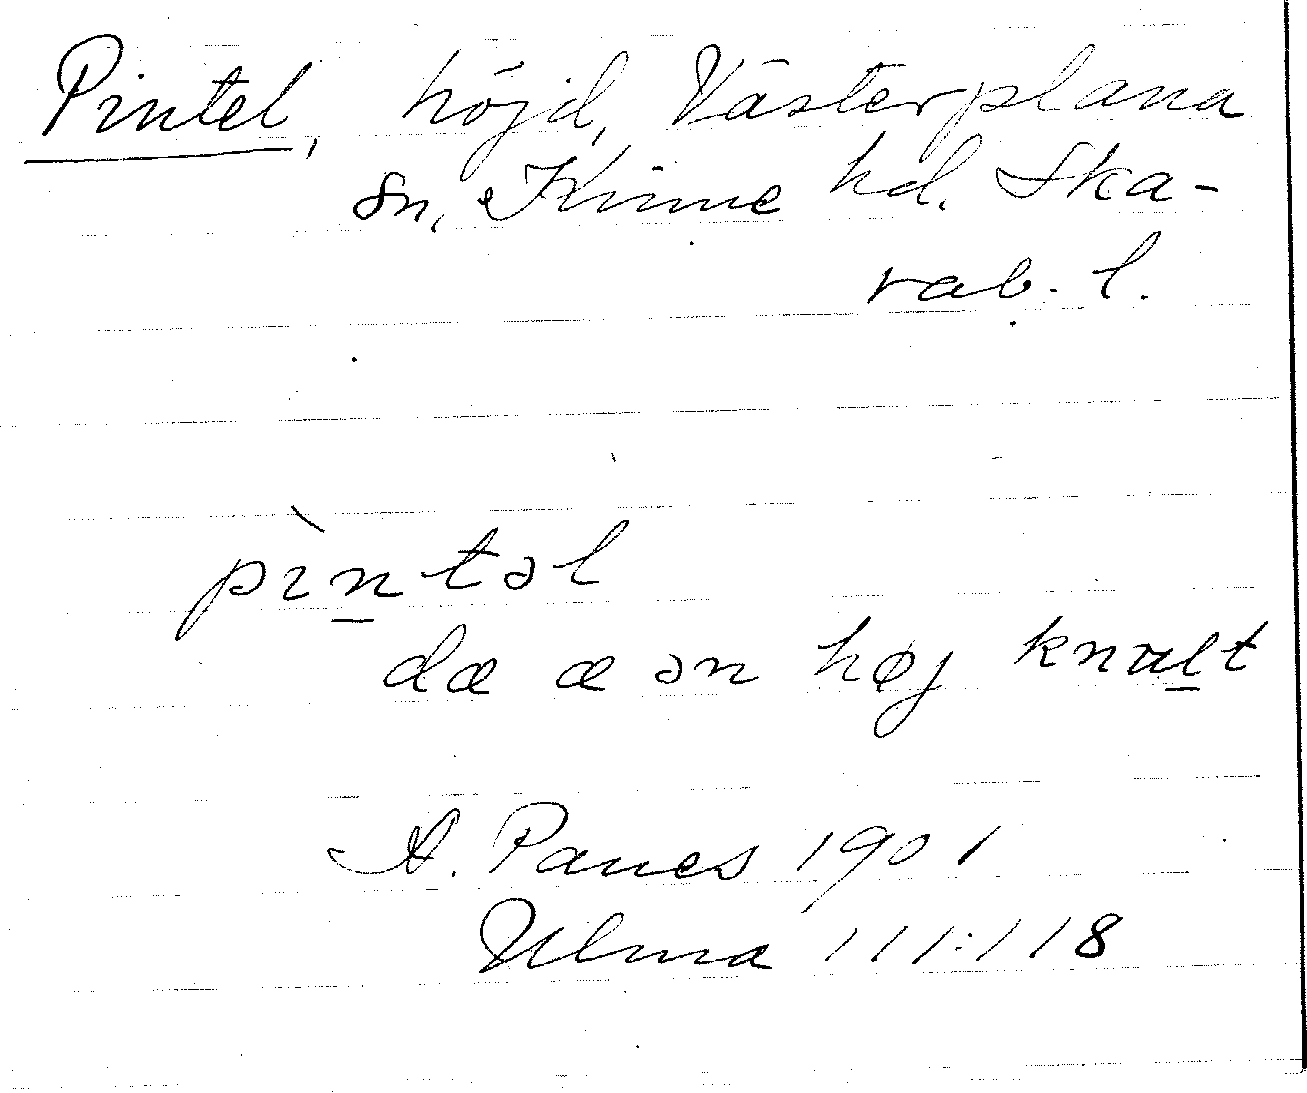 Pintel, höjd, Västerplana
sn, Kinne hd. Ska-
rab. l.
pìn̲təl
dæ æ ən høj knal̲t
A. Panes 1901
Ulma 111:118